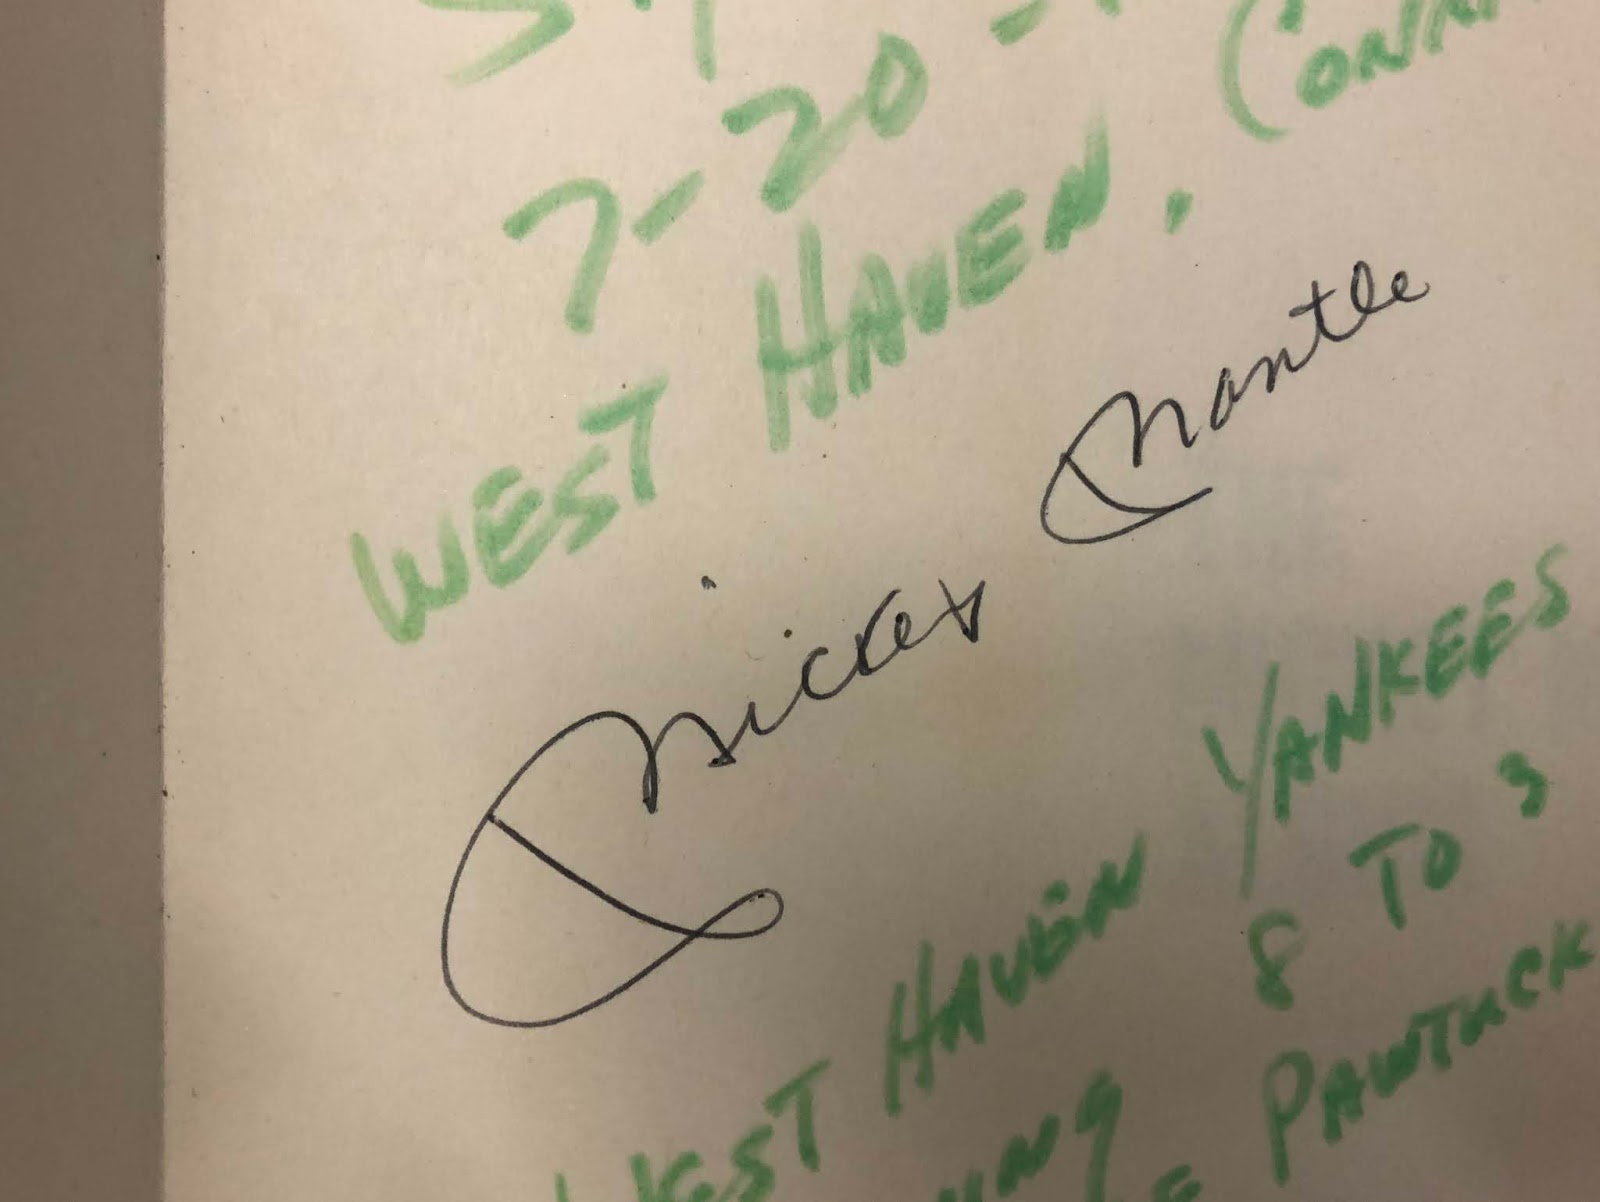 7-20-
WEST HAVEN, CONN
Mickey Mantle
WEST HAVEN YANKEES
8 TO 3
PAWTUCK